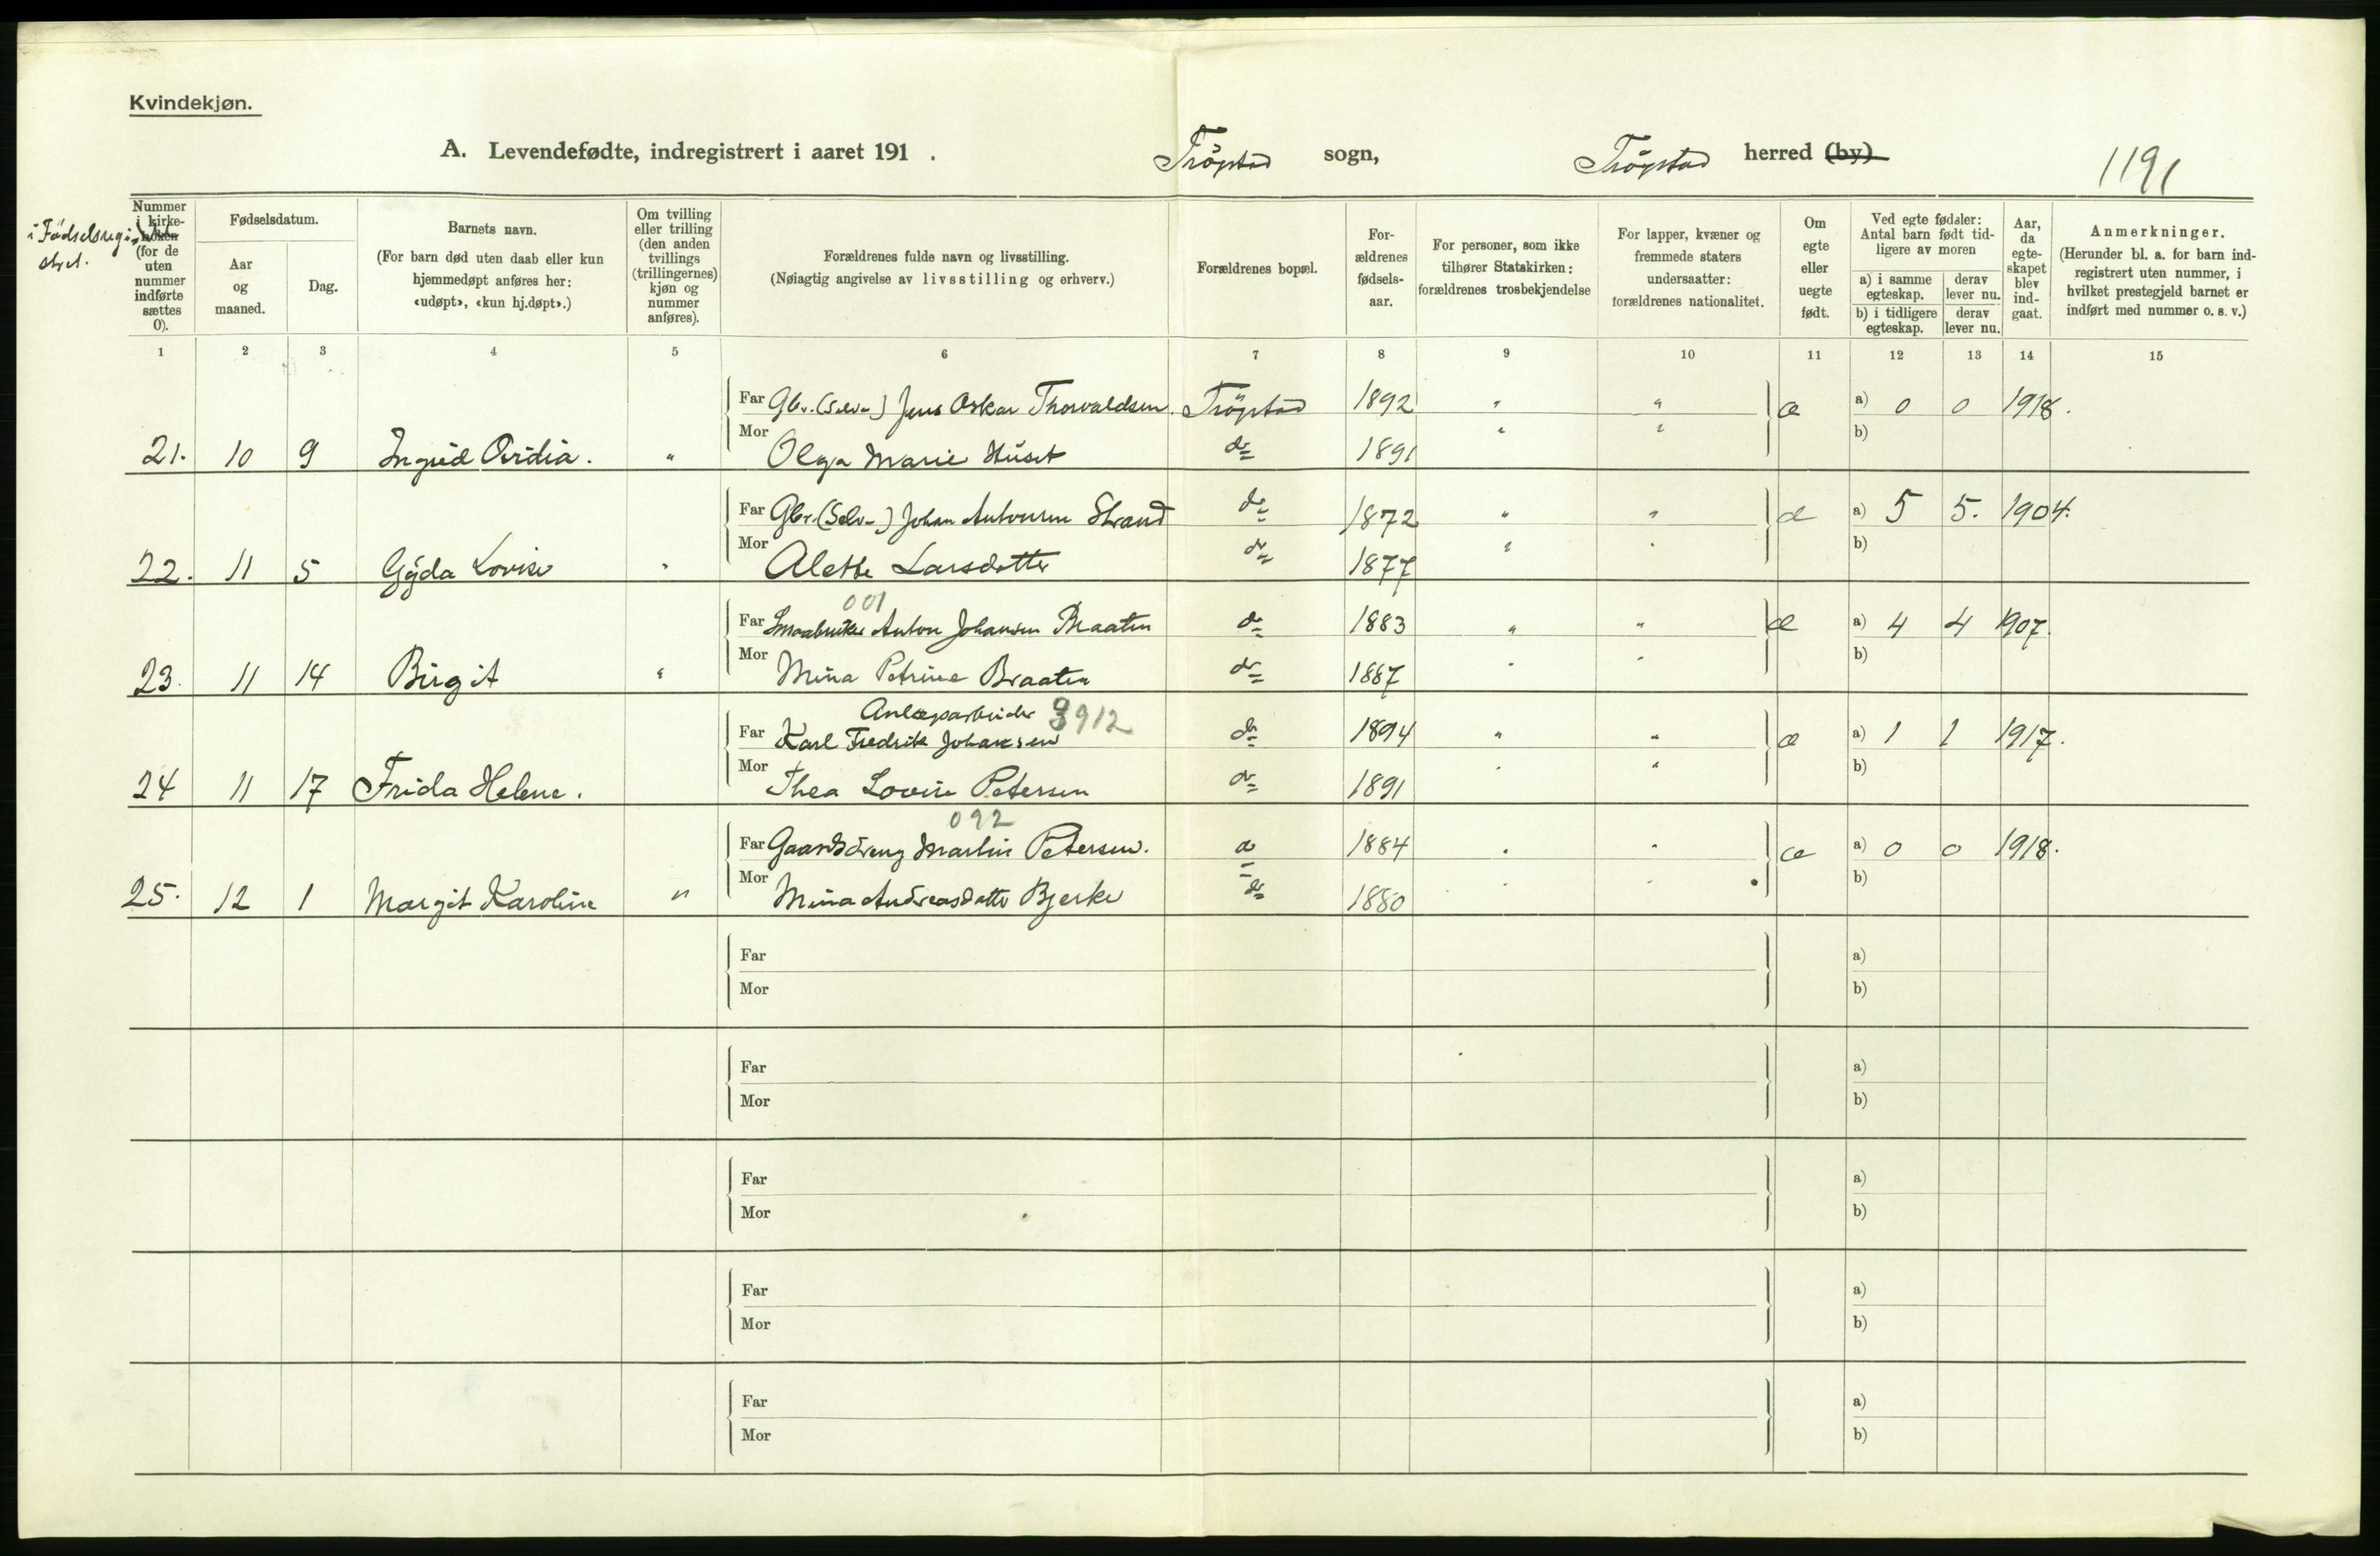 Kvindekjøn.
A. Levendefødte, indregistrert i aaret 191 . Trögstad sogn, Trögstad herred (by) 1191
i Födselsregi-
stret.
Nummer i kirke-boken (for de uten nummer indførte sættes 0).
Fødselsdatum.
Aar og maaned.
Dag.
Barnets navn.
(For barn død uten daab eller kun hjemmedøpt anføres her: «udøpt», «kun hj.døpt».)
Om tvilling eller trilling (den anden tvillings (trillingernes) kjøn og nummer anføres).
Forældrenes fulde navn og livsstilling.
(Nøiagtig angivelse av livsstilling og erhverv.)
Forældrenes bopæl.
For-ældrenes fødsels-aar.
For personer, som ikke tilhører Statskirken: forældrenes trosbekjendelse
For lapper, kvæner og fremmede staters undersaatter: forældrenes nationalitet.
Om egte eller uegte født.
Ved egte fødsler: Antal barn født tid-ligere av moren
a) i samme egteskap. derav lever nu.
b) i tidligere egteskap. derav lever nu.
Aar, da egte-skapet blev ind-gaat.
Anmerkninger.
(Herunder bl. a. for barn ind-registrert uten nummer, i hvilket prestegjeld barnet er indført med nummer o. s. v.)
1 2 3 4 5 6 7 8 9 10 11 12 13 14 15
Far Gbr. (Selv-) Jens Oskar Thorvaldsen. Trögstad 1892 " " æ a) 0 0 1918.
21. 10 9 Ingrid Ovidia. " Mor Olga Marie Huset do 1891 " " b)
Far Gbr. (Selv-) Johan Antonsen Strand do 1872 " " æ a) 5 5. 1904.
22. 11 5 Gyda Lovise " Mor Alette Larsdatter do 1877 " " b)
001
Far Smaabruker Anton Johansen Braaten do 1883 " " æ a) 4 4 1907.
23. 11 14 Birgit " Mor Mina Petrine Braaten do 1887 " " b)
Anlægsarbeider 3912
Far Karl Fredrik Johansen do 1894 " " æ a) 1 1 1917.
24 11 17 Frida Helene. Mor Thea Lovise Petersen do 1891 " " b)
092
Far Gaardsdreng Martin Petersen. do 1884 " " æ a) 0 0 1918.
25. 12 1 Margit Karoline " Mor Mina Andreasdatter Bjerke do 1880 " " b)
Far a)
Mor b)
Far a)
Mor b)
Far a)
Mor b)
Far a)
Mor b)
Far a)
Mor b)